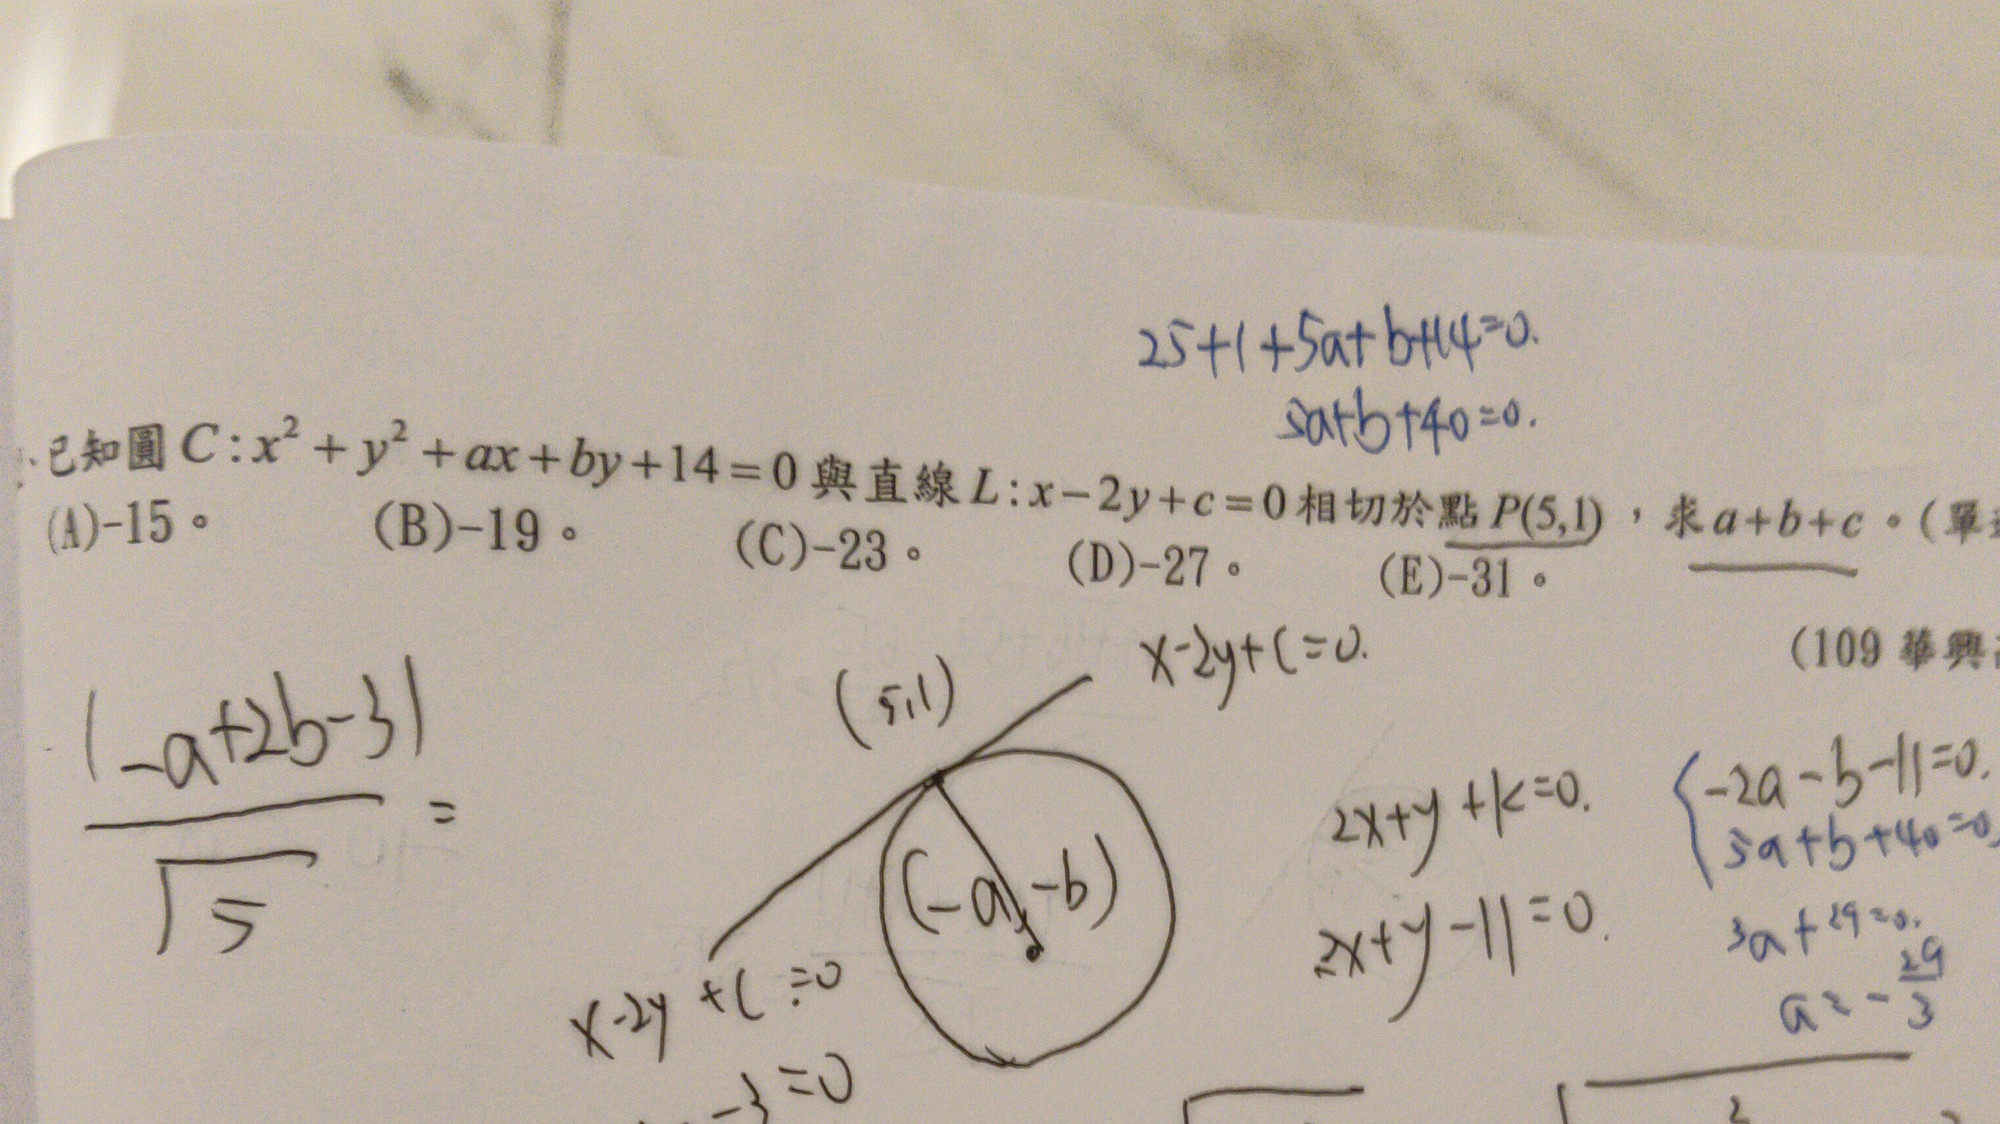 25+1+5a+b+14=0.
5a+b+40=0.
已知圓 C:x²+y²+ax+by+14=0 與直線 L:x-2y+c=0 相切於點 P(5,1),求 a+b+c。(單
(A)-15。 (B)-19。 (C)-23。 (D)-27。 (E)-31。
(109 華興
x-2y+c=0.
(5,1)
|-a+2b-3|
√5
=
(-a,-b)
x-2y+c=0
-3=0
2x+y+k=0.
2x+y-11=0.
{-2a-b-11=0.
5a+b+40=0,
3a+29=0.
a=-29/3